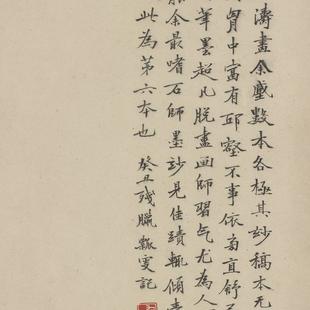 濤畫余蓄數本各極其妙稿本无
胷中富有邱壑不事依旁直舒
筆墨超凡脱盡画師習气尤為人
余最嗜石師墨妙見佳蹟輒傾
此為第六本也
癸丑殘臘瓠叟記